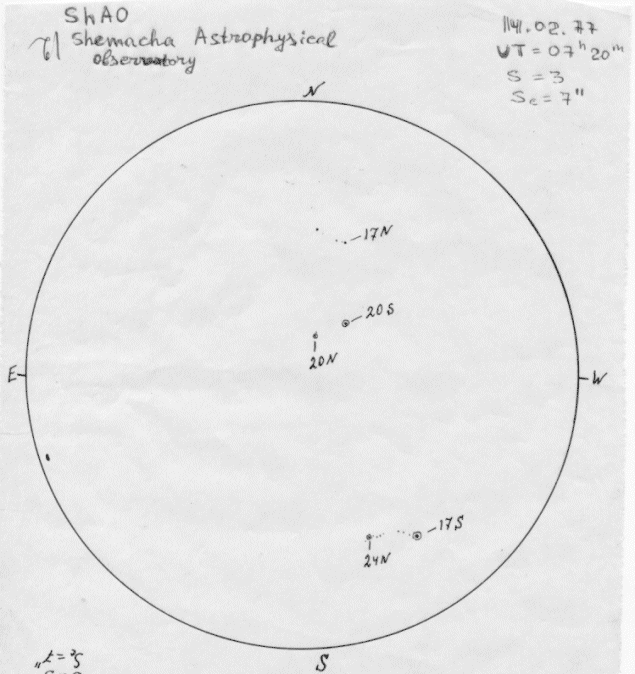 ShAO
Shemacha Astrophysical
Observatory
.02.77
UT = 07ʰ 20ᵐ
S = 3
Se = 7"
N
17N
20S
20N
E
W
17S
24N
S